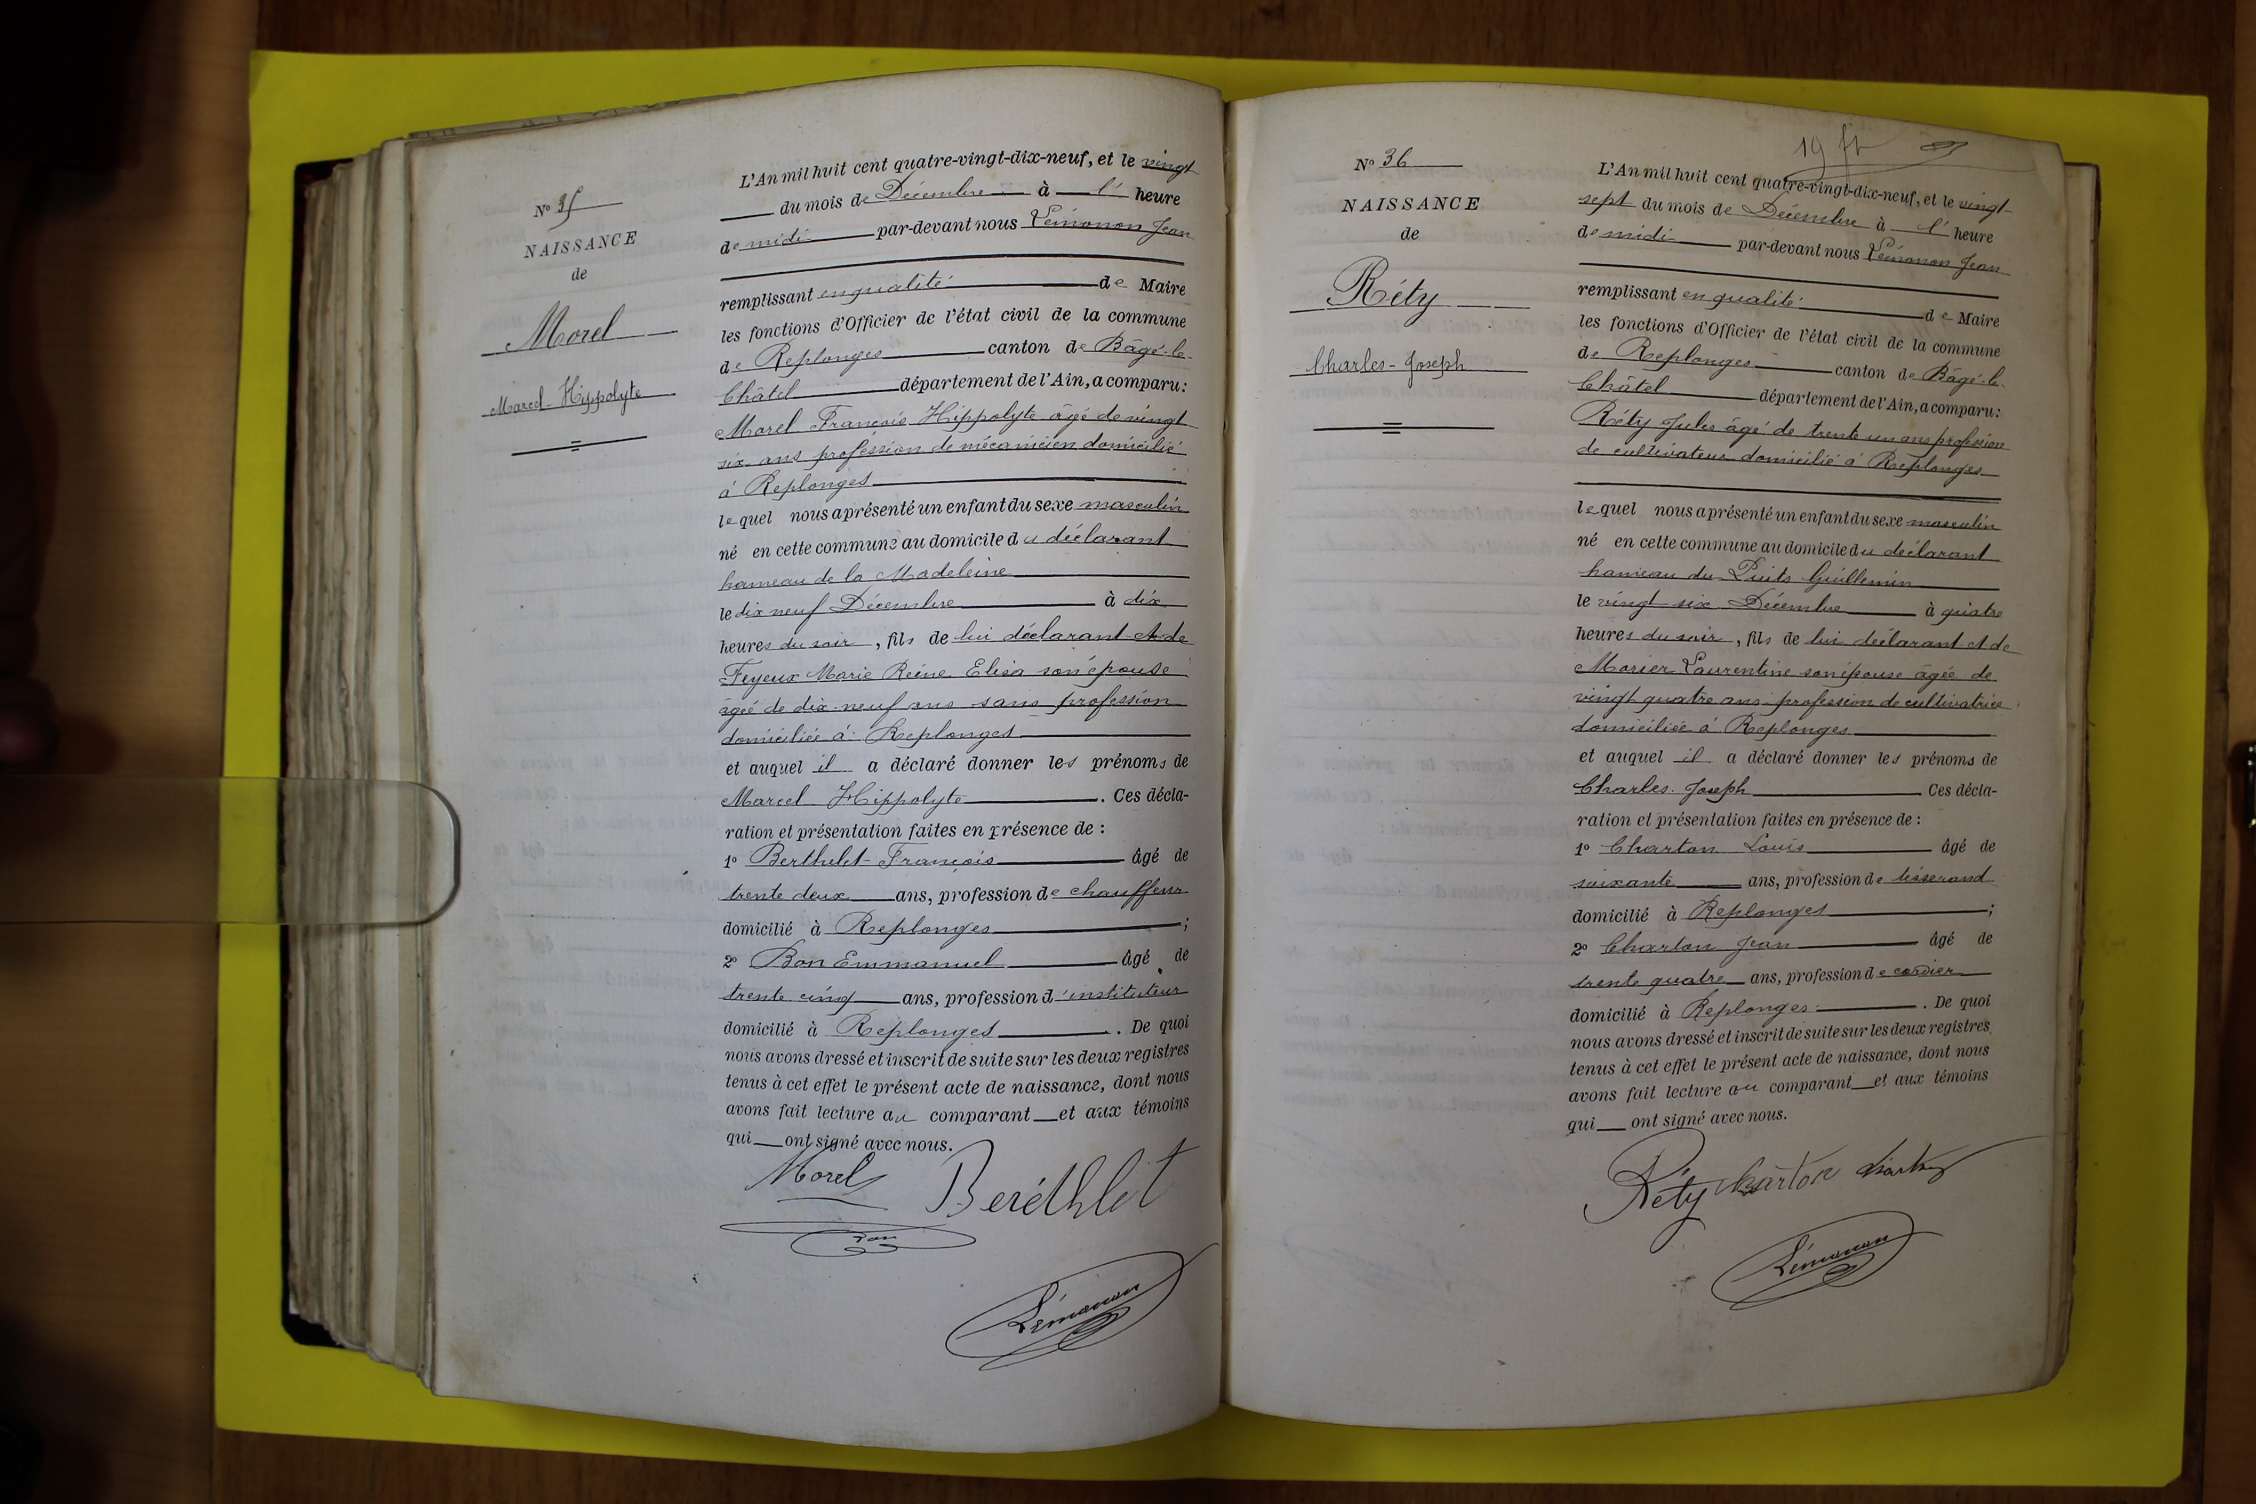 N° 35
NAISSANCE
de
Morel
Marcel-Hippolyte
L'An mil huit cent quatre-vingt-dix-neuf, et le vingt
du mois de Décembre à l' heure
de midi par-devant nous Lémonon Jean
remplissant en qualité de Maire
les fonctions d'Officier de l'état civil de la commune
de Replonges canton de Bâgé-le-
Châtel département de l'Ain, a comparu:
Morel François Hippolyte âgé de vingt
six ans profession de mécanicien domicilié
à Replonges
lequel nous a présenté un enfant du sexe masculin
né en cette commune au domicile du déclarant
hameau de la Madeleine
le dix neuf Décembre à dix
heures du soir, fils de lui déclarant et de
Feyeux Marie Reine Elisa son épouse
âgée de dix-neuf ans sans profession
domiciliée à Replonges
et auquel il a déclaré donner les prénoms de
Marcel Hippolyte. Ces décla-
ration et présentation faites en présence de :
1° Berthelet François âgé de
trente deux ans, profession de chauffeur
domicilié à Replonges ;
2° Bon Emmanuel âgé de
trente cinq ans, profession d'instituteur
domicilié à Replonges. De quoi
nous avons dressé et inscrit de suite sur les deux registres
tenus à cet effet le présent acte de naissance, dont nous
avons fait lecture au comparant et aux témoins
qui ont signé avec nous.
Morel Beréthlet
Bon
Lémonon
19 ft
N° 36
NAISSANCE
de
Réty
Charles-Joseph
L'An mil huit cent quatre-vingt-dix-neuf, et le vingt-
sept du mois de Décembre à l' heure
de midi par-devant nous Lémonon Jean
remplissant en qualité de Maire
les fonctions d'Officier de l'état civil de la commune
de Replonges canton de Bâgé-le-
Châtel département de l'Ain, a comparu:
Réty Jules âgé de trente un ans profession
de cultivateur domicilié à Replonges
lequel nous a présenté un enfant du sexe masculin
né en cette commune au domicile du déclarant
hameau du Puits Guillemin
le vingt six Décembre à quatre
heures du soir, fils de lui déclarant et de
Morier Laurentine son épouse âgée de
vingt quatre ans profession de cultivatrice
domiciliée à Replonges
et auquel il a déclaré donner les prénoms de
Charles Joseph Ces décla-
ration et présentation faites en présence de :
1° Charton Louis âgé de
soixante ans, profession de tisserand
domicilié à Replonges ;
2° Charton Jean âgé de
trente quatre ans, profession de cordier
domicilié à Replonges. De quoi
nous avons dressé et inscrit de suite sur les deux registres
tenus à cet effet le présent acte de naissance, dont nous
avons fait lecture au comparant et aux témoins
qui ont signé avec nous.
Réty Charton Charton
Lémonon